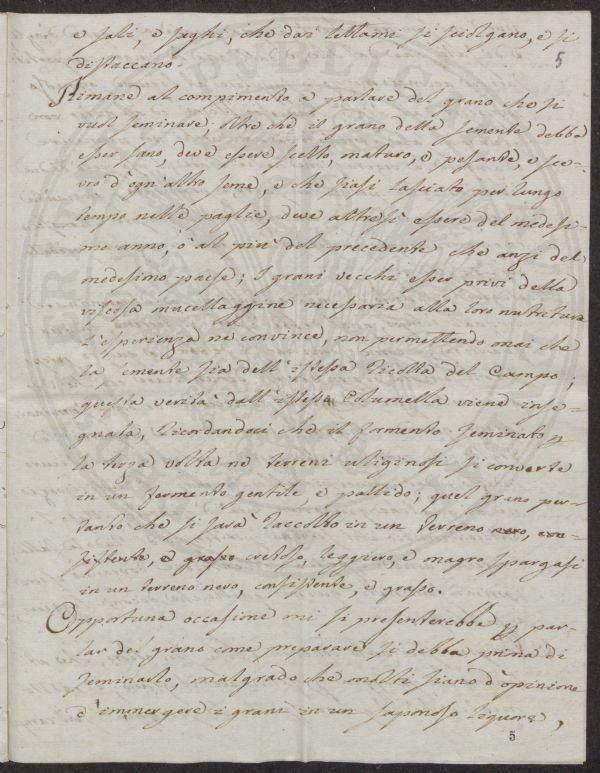 e sali, e seghi, che dai lettami si sciolgano, e si
distaccano.
5
Rimane al compimento a parlare del grano che si
vuol seminare; oltre che il grano della semente debba
esser sano, deve essere scelto, maturo, e pesante, e sce-
vro d'ogn'altro seme, e che siasi lasciato per lungo
tempo nelle paglie, deve altresì essere del medesi-
mo anno, o al più del precedente che anzi del
medesimo paese; I grani vecchi esser privi della
viscosa mucellaggine necessaria alla loro nutritura
l'esperienza ne convince, non permettendo mai che
la semente sia dell'istessa ricolta del Campo;
questa verità dall'istesso Columella viene inse-
gnata, ricordandoci che il formento seminato
la terza volta ne terreni uliginosi si converte
in un formento gentile, e pallido; quel grano per-
tanto che si sarà raccolto in un terreno nero, con-
sistente, e grasso cretoso, leggiero, e magro spargasi
in un terreno nero, consistente, e grasso.
Opportuna occasione mi si presenterebbe par-
lar del grano come preparare si debba prima di
seminarlo, malgrado che molti siano d'opinione
d'immergere i grani in un saponoso liquore,
5